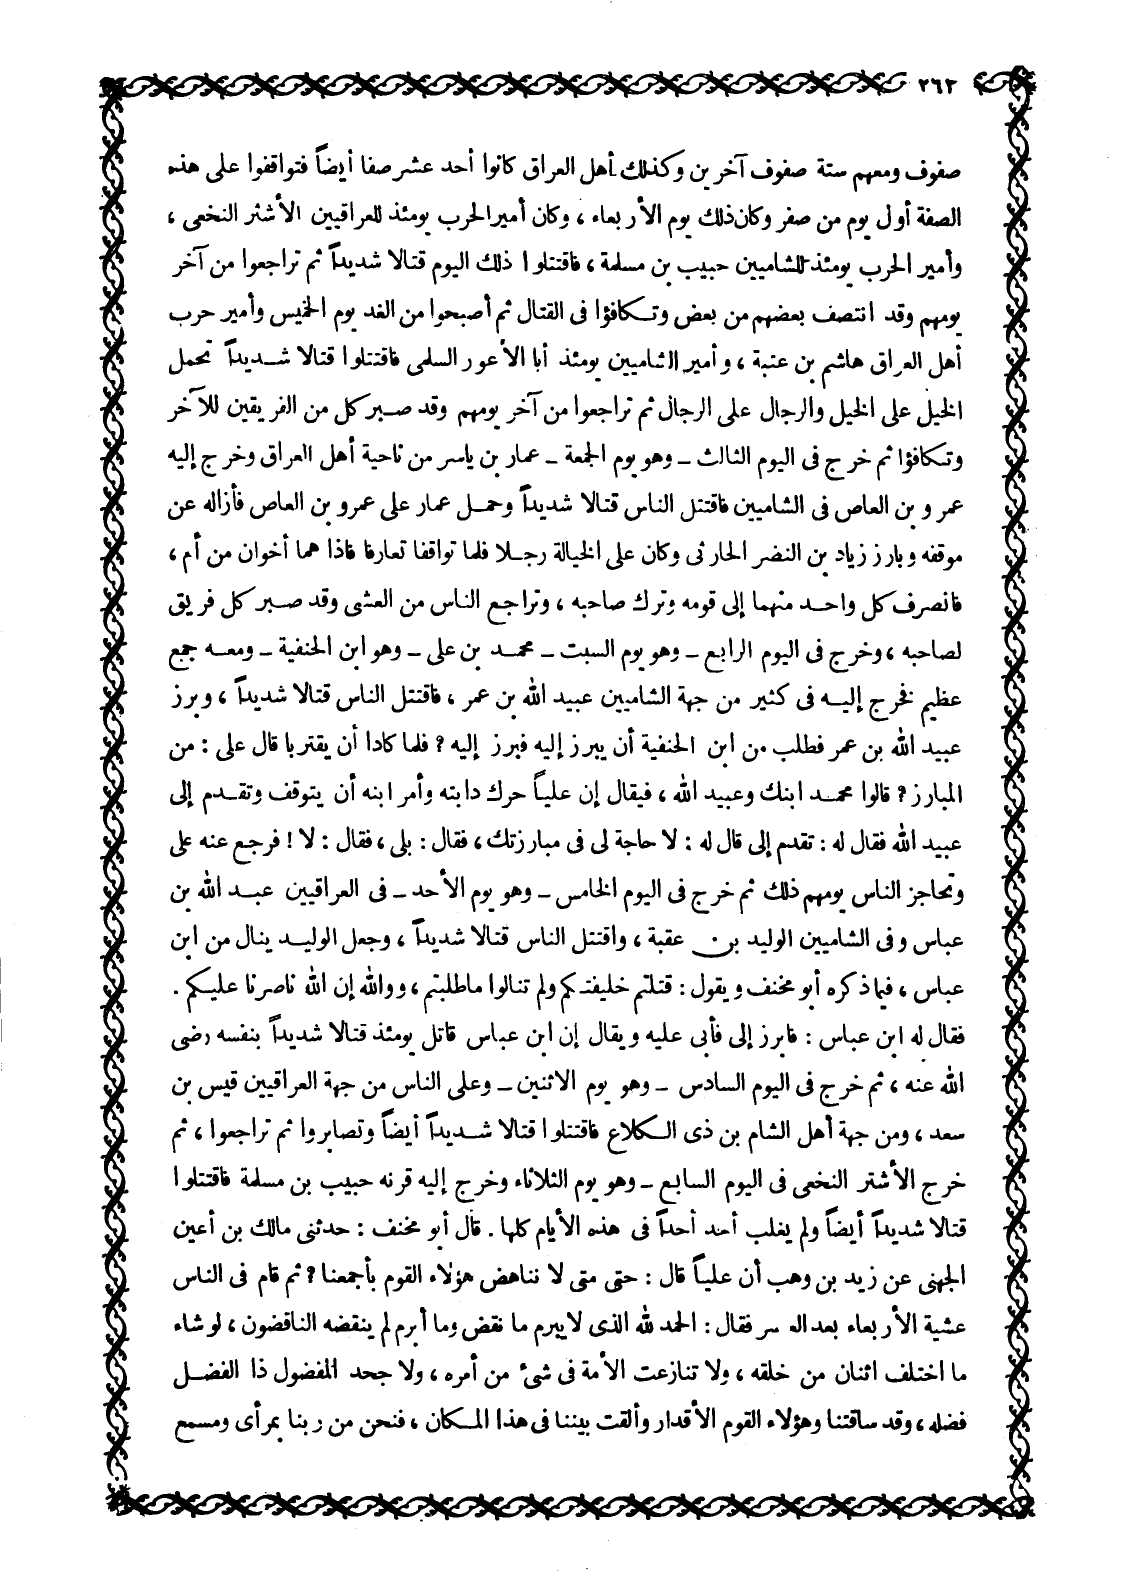 ٢٦٢
صفوف ومعهم ستة صفوف آخرين وكذلك أهل العراق كانوا أحد عشر صفا أيضاً فتواقفوا على هذه
الصفة أول يوم من صفر وكان ذلك يوم الأربعاء ، وكان أمير الحرب يومئذ للعراقيين الأشتر النخعى ،
وأمير الحرب يومئذ للشاميين حبيب بن مسلمة ، فاقتتلوا ذلك اليوم قتالا شديداً ثم تراجعوا من آخر
يومهم وقد انتصف بعضهم من بعض وتكافؤا فى القتال ثم أصبحوا من الغد يوم الخميس وأمير حرب
أهل العراق هاشم بن عتبة ، وأمير الشاميين يومئذ أبا الأعور السلمى فاقتتلوا قتالا شديداً تحمل
الخيل على الخيل والرجال على الرجال ثم تراجعوا من آخر يومهم وقد صبر كل من الفريقين للآخر
وتكافؤا ثم خرج فى اليوم الثالث ــ وهو يوم الجمعة ــ عمار بن ياسر من ناحية أهل العراق وخرج إليه
عمرو بن العاص فى الشاميين فاقتتل الناس قتالا شديداً وحمل عمار على عمرو بن العاص فأزاله عن
موقفه وبارز زياد بن النضر الحارثى وكان على الخيالة رجلا فلما تواقفا تعارفا فاذا هما أخوان من أم ،
فانصرف كل واحد منهما إلى قومه وترك صاحبه ، وتراجع الناس من العشى وقد صبر كل فريق
لصاحبه ، وخرج فى اليوم الرابع ــ وهو يوم السبت ــ محمد بن على ــ وهو ابن الحنفية ــ ومعه جمع
عظيم فخرج إليه فى كثير من جهة الشاميين عبيد الله بن عمر ، فاقتتل الناس قتالا شديداً ، وبرز
عبيد الله بن عمر فطلب من ابن الحنفية أن يبرز إليه فبرز إليه ؟ فلما كادا أن يقتربا قال على : من
المبارز ؟ قالوا محمد ابنك وعبيد الله ، فيقال إن علياً حرك دابته وأمر ابنه أن يتوقف وتقدم إلى
عبيد الله فقال له : تقدم إلى قال له : لا حاجة لى فى مبارزتك ، فقال : بلى ، فقال : لا ! فرجع عنه على
وتحاجز الناس يومهم ذلك ثم خرج فى اليوم الخامس ــ وهو يوم الأحد ــ فى العراقيين عبد الله بن
عباس وفى الشاميين الوليد بن عقبة ، واقتتل الناس قتالا شديداً ، وجعل الوليد ينال من ابن
عباس ، فيما ذكره أبو مخنف ويقول : قتلتم خليفتكم ولم تنالوا ماطلبتم ، ووالله إن الله ناصرنا عليكم .
فقال له ابن عباس : فابرز إلى فأبى عليه ويقال إن ابن عباس قاتل يومئذ قتالا شديداً بنفسه رضى
الله عنه ، ثم خرج فى اليوم السادس ــ وهو يوم الاثنين ــ وعلى الناس من جهة العراقيين قيس بن
سعد ، ومن جهة أهل الشام بن ذى الكلاع فاقتتلوا قتالا شديداً أيضاً وتصابروا ثم تراجعوا ، ثم
خرج الأشتر النخعى فى اليوم السابع ــ وهو يوم الثلاثاء وخرج إليه قرنه حبيب بن مسلمة فاقتتلوا
قتالا شديداً أيضاً ولم يغلب أحد أحداً فى هذه الأيام كلها . قال أبو مخنف : حدثنى مالك بن أعين
الجهنى عن زيد بن وهب أن علياً قال : حتى متى لا نناهض هؤلاء القوم بأجمعنا ؟ ثم قام فى الناس
عشية الأربعاء بعد فقال : الحمد لله الذى لايبرم ما نقض وما أبرم لم ينقضه الناقضون ، لو شاء
ما اختلف اثنان من خلقه ، ولا تنازعت الأمة فى شئ من أمره ، ولا جحد المفضول ذا الفضل
فضله ، وقد ساقتنا وهؤلاء القوم الأقدار وألقت بيننا فى هذا المكان ، فنحن من ربنا بمرأى ومسمع